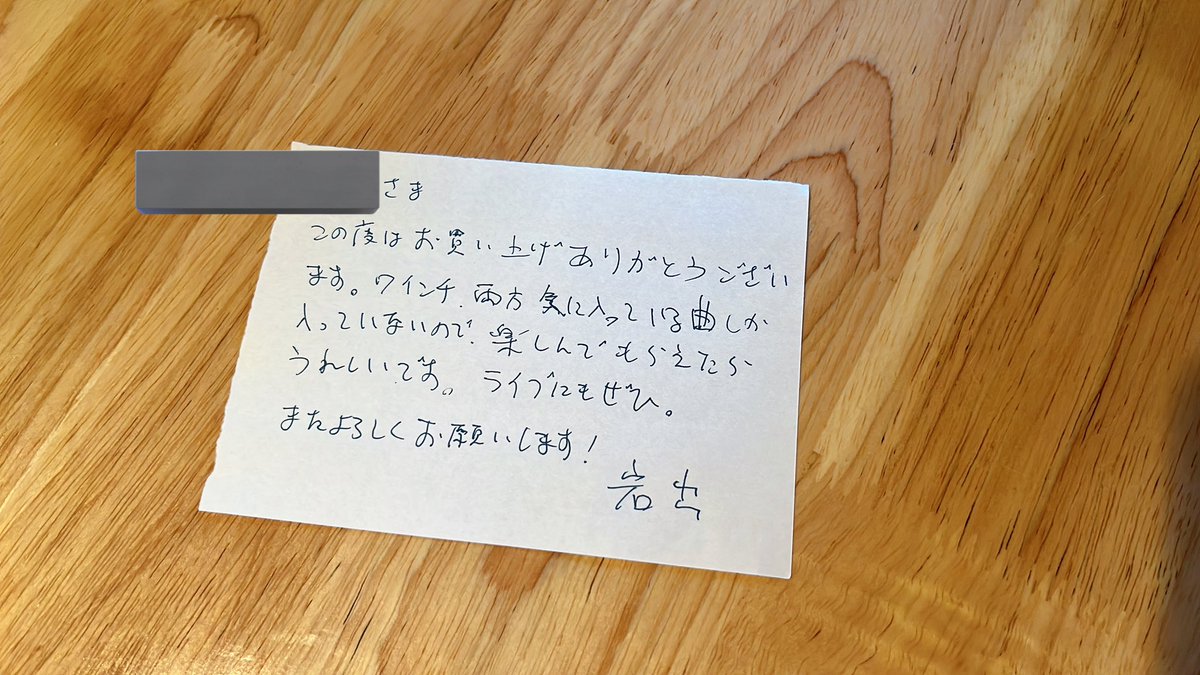 さま
この度はお買い上げありがとうござい
ます。ワインチ、両方気に入っている曲しか
入っていないので、楽しんでもらえたら
うれしいです。ライブにもぜひ。
またよろしくお願いします！
岩出